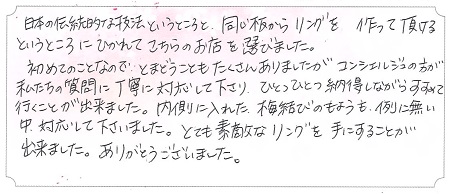 日本の伝統的な技法というところと、同じ板からリングを 作って頂ける
というところにひかれてこちらのお店を選びました。
初めてのことなので とまどうこともたくさんありましたが コンシェルジュの方が
私たちの質問に丁寧に対応して下さり、ひとつひとつ納得しながらすすめて
行くことが出来ました。内側に入れた、梅結びのもようも、例に無い
中、対応して下さいました。とても素敵なリングを手にすることが
出来ました。ありがとうございました。